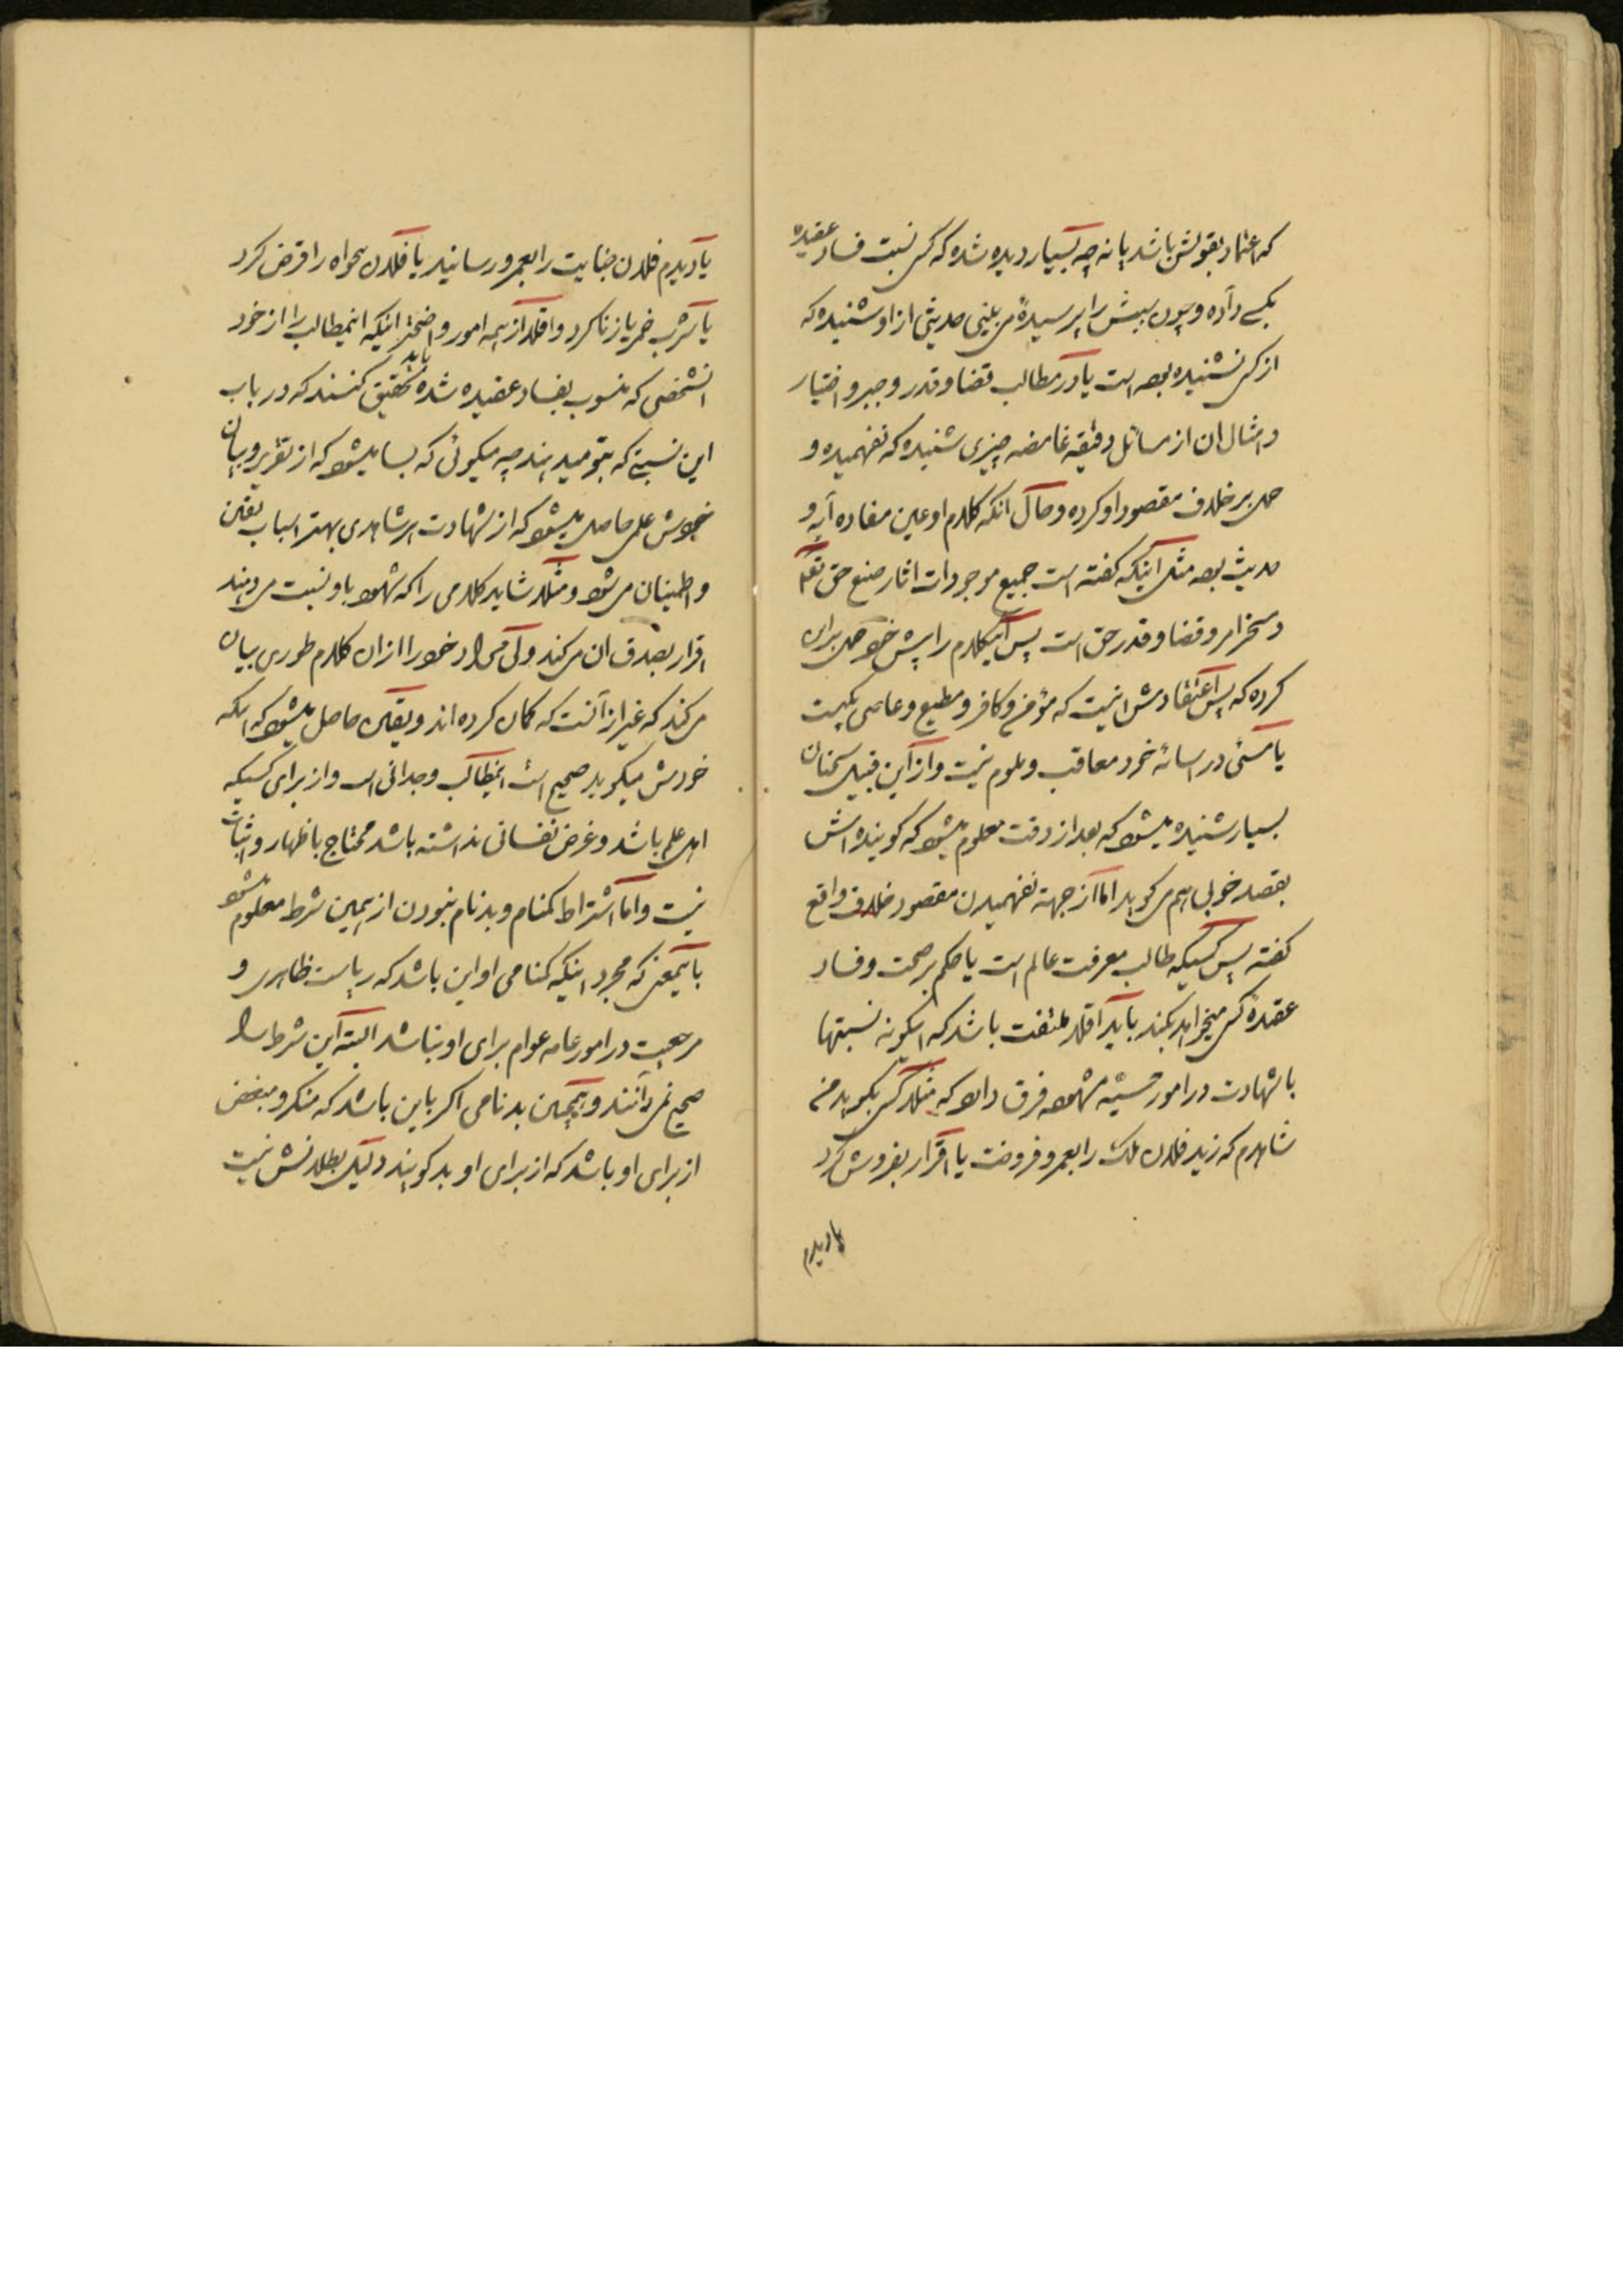 که اعتماد بقولش باشد یا نه چه بسیار دیده شده که کسی نسبت فساد عقیده
بکسی داده و چون سببش را پرسیدهٔ می بینی حدیثی از او شنیده که
از کسی نشنیده بوده است یا در مطالب قضا و قدر و جبر و اختیار
و امثال ان از مسائل دقیقه غامضه چیزی شنیده که نفهمیده و
حمل بر خلاف مقصود او کرده و حال انکه کلام او عین مفاد ه آیه و
حدیث بوده مثل اینکه گفته است جمیع موجودات اثار صنع حق تعالی
و مسخر امر و قضا و قدر حق است پس اینکلام را پیش خود حمل بران
کرده که پس اعتقادش اینست که مؤمن و کافر و مطیع و عاصی یکیست
یا مسئی در اسائه خود معاقب و ملوم نیست و از این قبیل سخنان
بسیار شنیده میشود که بعد از دقت معلوم میشود که گوینده اش
بقصد خوبی هم می گوید اما از جهته نفهمیدن مقصود خلاف واقع
گفته پس کسیکه طالب معرفت عالم است یا حکم بر صحت و فساد
عقیدهٔ کسی میخواهد بکند باید اقلا ملتفت باشد که اینگونه نسبتها
با شهادت در امور حسیّه مشهوده فرق دارد که مثلا کسی بگوید من
شاهدم که زید فلان ملک را بعمرو فروخت یا اقرار بفروش کرد
یا دیدم
یا دیدم فلان جنایت را بعمرو رسانید یا فلان تنخواه را قرض کرد
یا شرب خمر یا زنا کرد و اقلا از همه امور واضحتر اینکه اینمطالب را از خود
انشخصی که منسوب بفساد عقیده شده باید تحقیق کنند که در باب
این نسبتی که بتو میدهند چه میگوئی که بسا میشود که از تقریر و بیان
خودش علمی حاصل میشود که از شهادت هر شاهدی بهتر اسباب یقین
و اطمینان می شود و مثلا شاید کلامی را که شهود باو نسبت میدهند
اقرار بصدق ان می کند ولی مراد خود را از ان کلام طوری بیان
می کند که غیر از آنست که گمان کرده اند و یقین حاصل میشود که انکه
خودش میگوید صحیح است اینمطالب وجدانی است و از برای کسیکه
اهل علم باشد و غرض نفسانی نداشته باشد محتاج باظهار و اثبات
نیست و اما اشتراط گمنام و بدنام نبودن از همین شرط معلوم میشود
باینمعنی که مجرد اینکه گمنامی او این باشد که ریاست ظاهری و
مرجعیت در امور عامه عوام برای او نباشد البته این شرط را
صحیح نمی دانند و همچنین بدنامی اگر باین باشد که منکر و مبغض
از برای او باشد که از برای او بد گویند دلیل بطلانش نیست